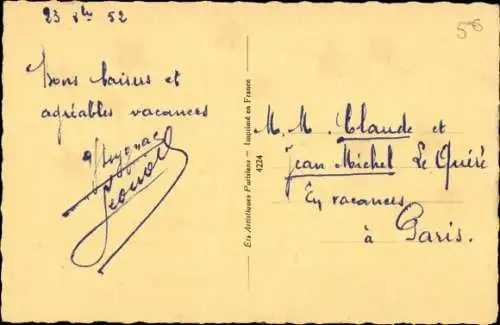 23 8bre 52
Bons baisers et
agréables vacances
Ets Artistiques Parisiens — Imprimé en France
4224
56
M. M. Claude et
Jean Michel Le Quéré
En vacances
à Paris.